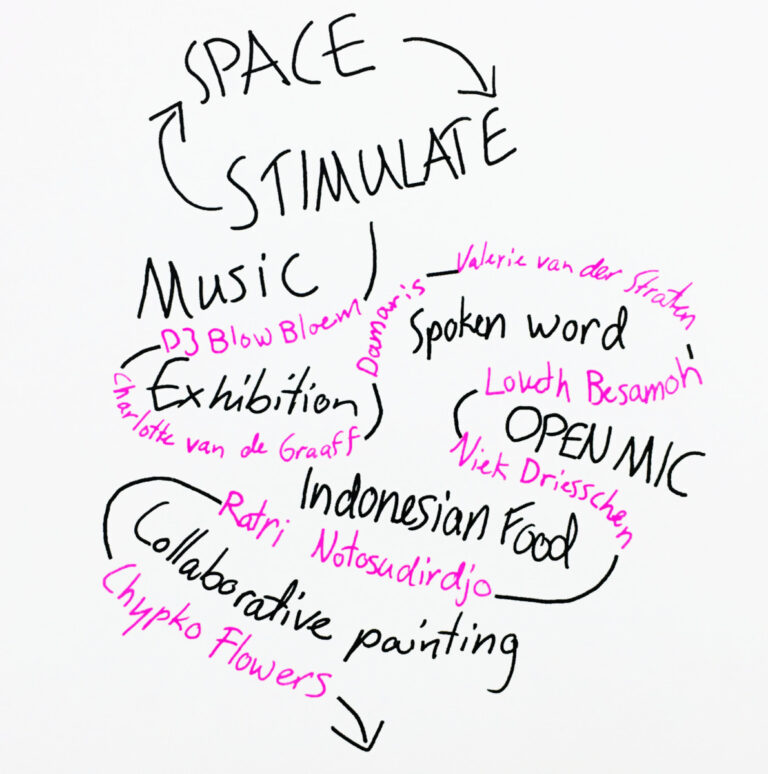 SPACE
STIMULATE
Music
DJ Blow Bloem
Damaris
Valerie van der Straten
Spoken word
Exhibition
Charlotte van de Graaff
Loudh Besamoh
OPEN MIC
Niek Driesschen
Indonesian Food
Ratri Notosudirdjo
Collaborative painting
Chypko Flowers